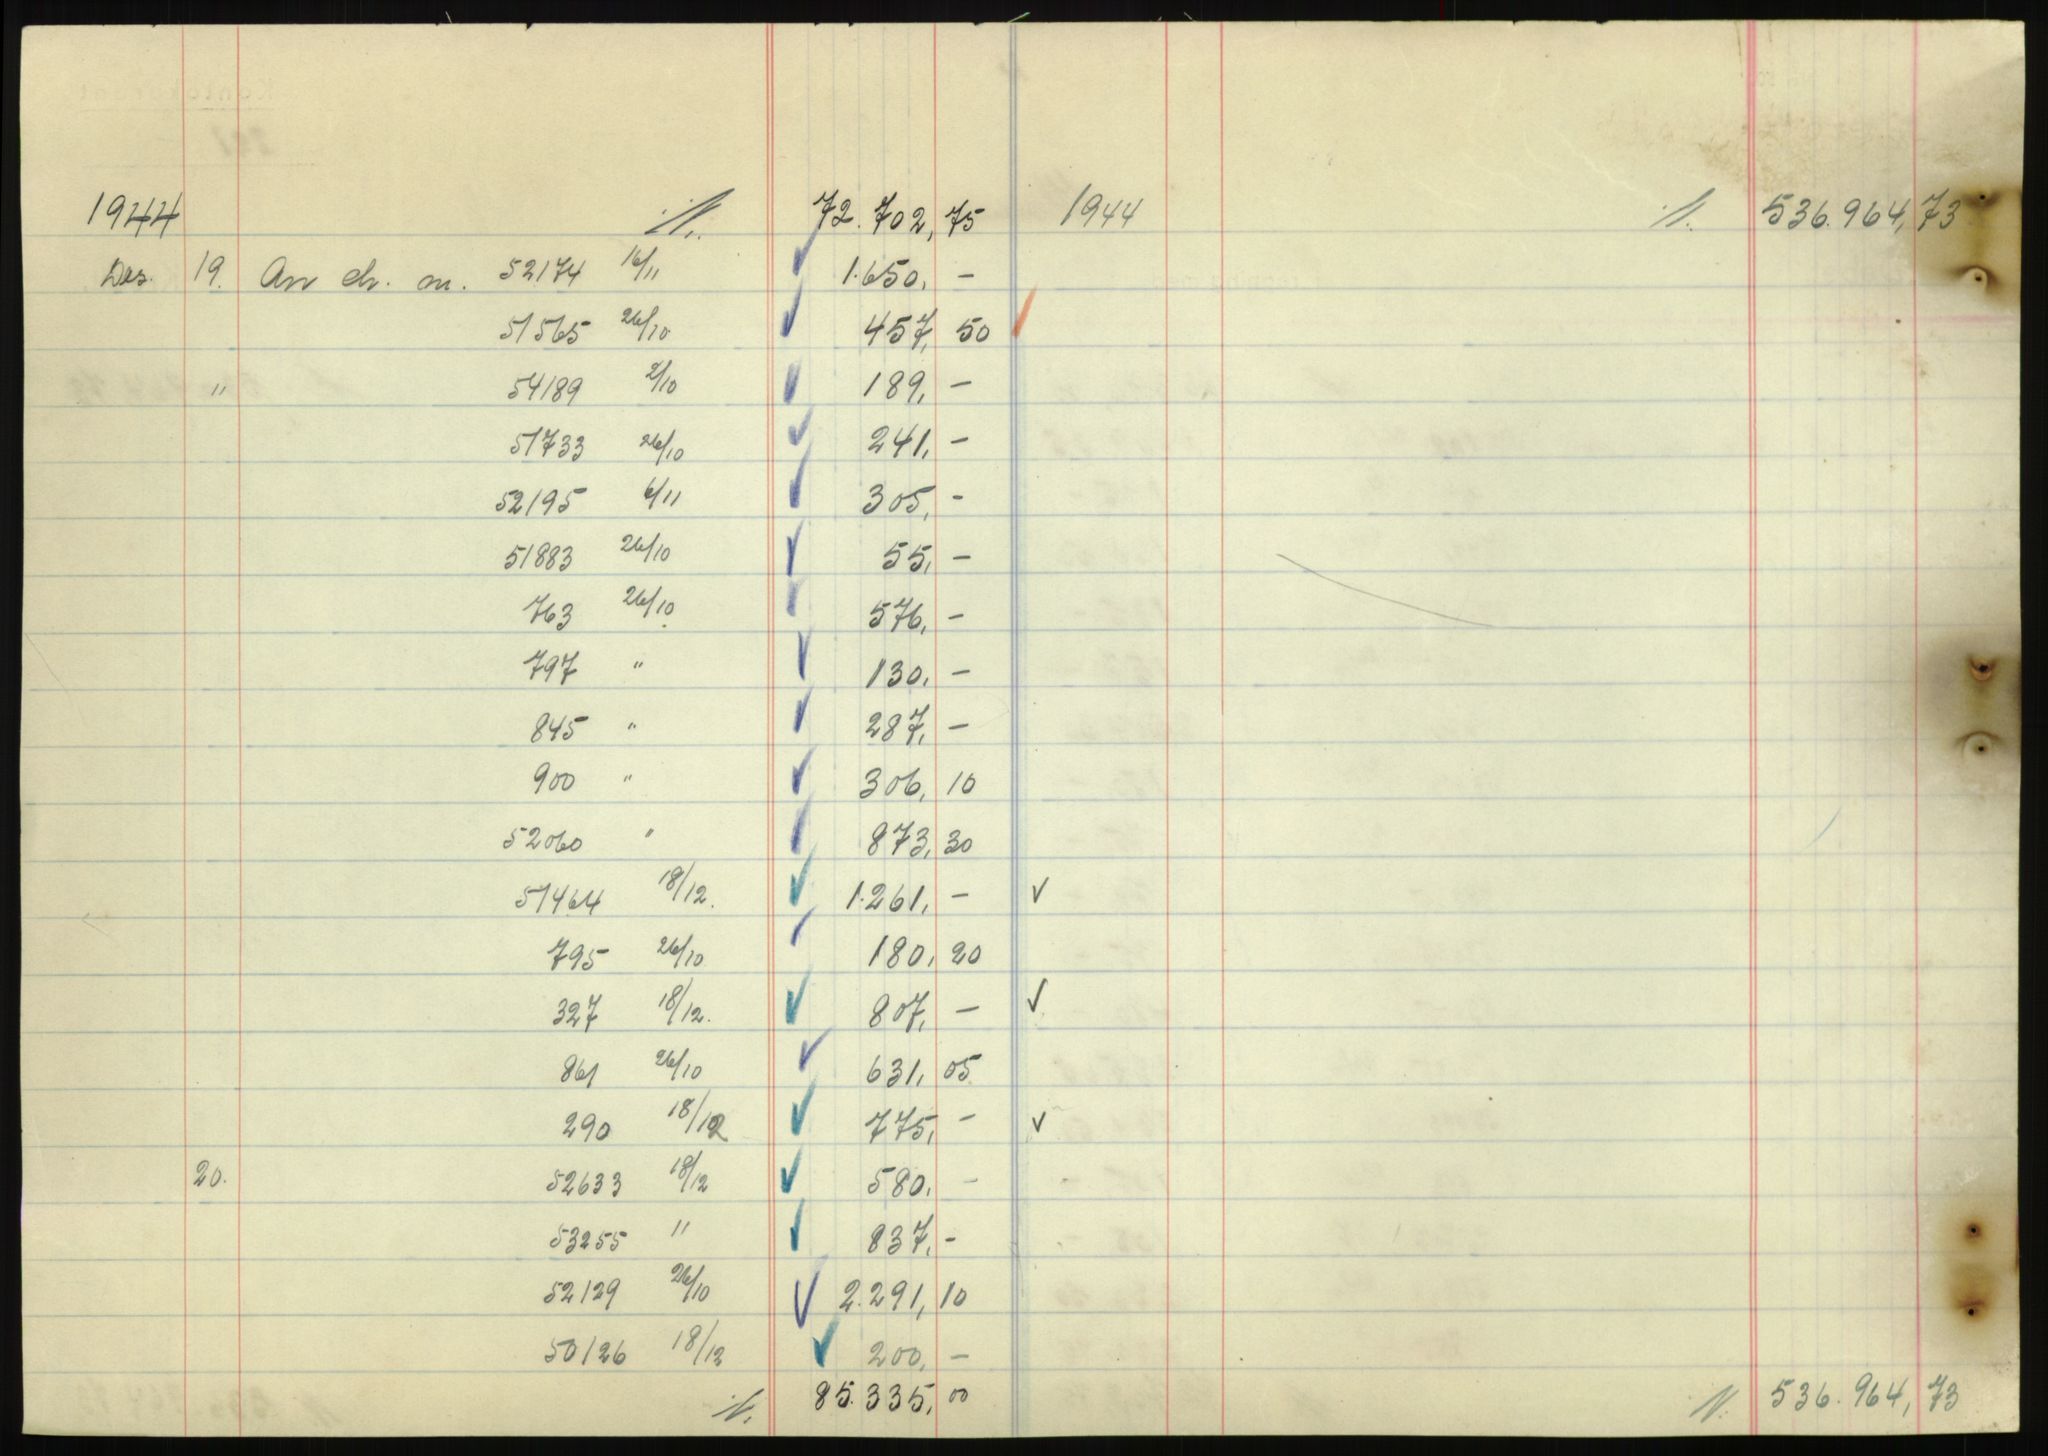 1944 ./. 72.702,75 1944 ./. 536.964,73
Des. 19. An ch. on. 52174 16/11 1.650,-
51565 26/10 457,50
" 54189 2/10 189,-
51733 26/10 241,-
52195 6/11 305,-
51883 26/10 55,-
763 26/10 576,-
797 " 130,-
845 " 287,-
900 " 306,10
52060 " 873,30
51464 18/12. 1.261,-
795 26/10 180,20
327 18/12. 807,-
861 26/10 631,05
290 18/12 775,-
20. 52633 18/12 580,-
53255 " 837,-
52129 26/10 2.291,10
50126 18/12 200,-
./. 85.335,00 ./. 536.964,73